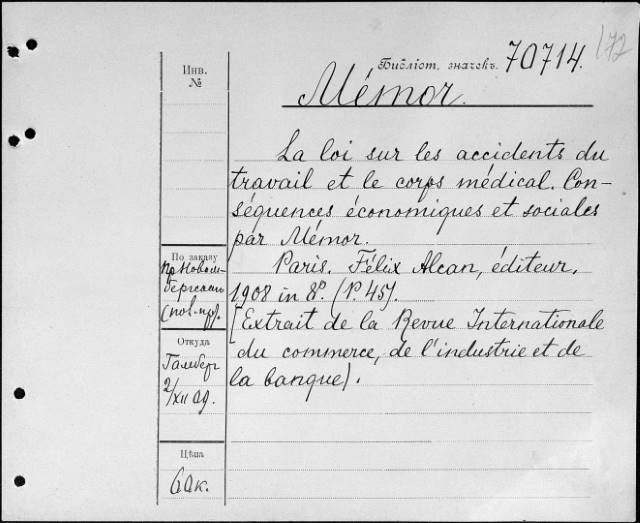 172
Библіот. значекъ. 70714.
Инв.
№
Mémor.
La loi sur les accidents du
travail et le corps médical. Con-
séquences économiques et sociales
par Mémor.
Paris. Félix Alcan, éditeur.
1908 in 8º. (P. 45).
[Extrait de la Revue Internationale
du commerce, de l'industrie et de
la banque).
По заказу
пр. Новом-
бергомъ
Откуда
2/XII 09.
Цѣна
60к.